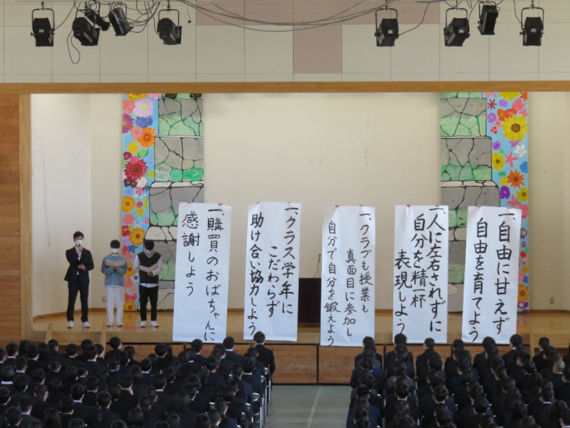 一、自由に甘えず
自由を育てよう
一、人に左右されずに
自分を精一杯
表現しよう
一、クラブも授業も
真面目に参加し
自分で自分を鍛えよう
一、クラス学年に
こだわらず
助け合い協力しよう
一、購買のおばちゃんに
感謝しよう